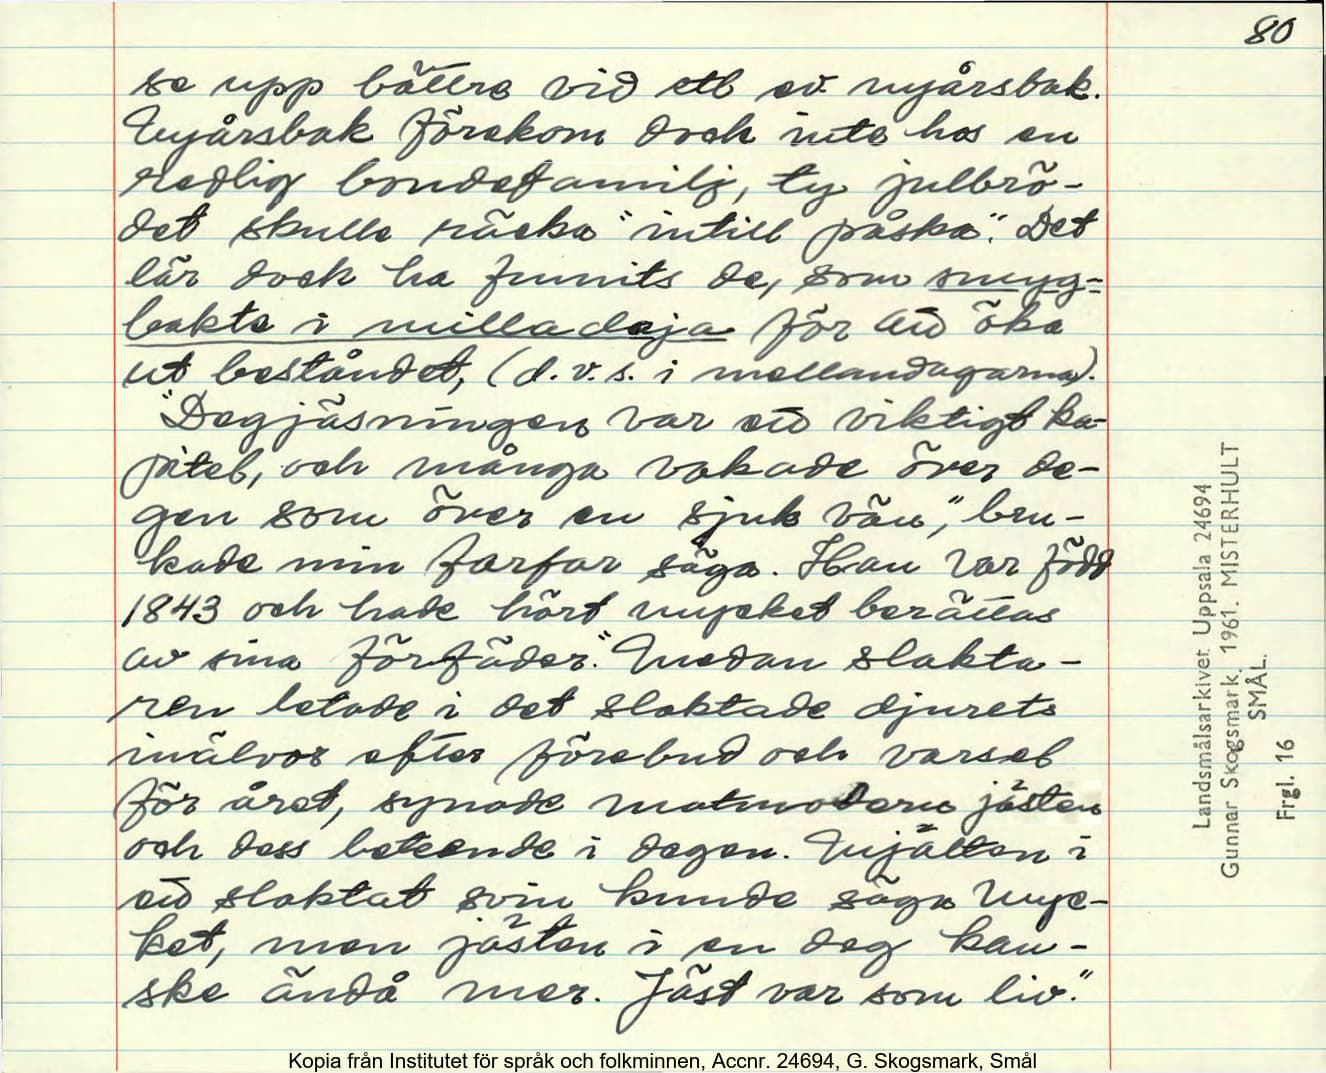 80
se upp bättre vid ett ev. nyårsbak.
Nyårsbak förekom dock inte hos en
redlig bondefamilj, ty julbrö-
det skulle räcka "intill påska". Det
lär dock ha funnits de, som smyg=
bakte i milladaja för att öka
ut beståndet, (d.v.s. i mellandagarna).
"Degjäsningen var ett viktigt ka-
pitel, och många vakade över de-
gen som över en sjuk vän," bru-
kade min farfar säga. Han var född
1843 och hade hört mycket berättas
av sina förfäder. "Medan slakta-
ren letade i det slaktade djurets
inälvor efter förebud och varsel
för året, synade matmodern jästen
och dess beteende i degen. Mjälten i
ett slaktat svin kunde säga myc-
ket, men jästen i en deg kan-
ske ändå mer. Jäst var som liv."
Landsmålsarkivet Uppsala 24694
Gunnar Skogsmark. 1961. MISTERHULT
SMÅL.
Frgl. 16
Kopia från Institutet för språk och folkminnen, Accnr. 24694, G. Skogsmark, Smål